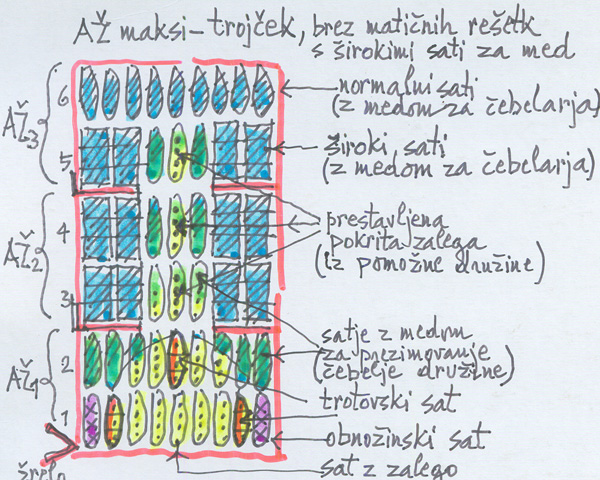 AŽ maksi-trojček, brez matičnih rešetk
s širokimi sati za med
6
AŽ3
5
4
AŽ2
3
2
AŽ1
1
žrelo
normalni sati
(z medom za čebelarja)
široki sati
(z medom za čebelarja)
prestavljena
pokrita zalega
(iz pomožne družine)
satje z medom
za prezimovanje
(čebelje družine)
trotovski sat
obnožinski sat
sat z zalego